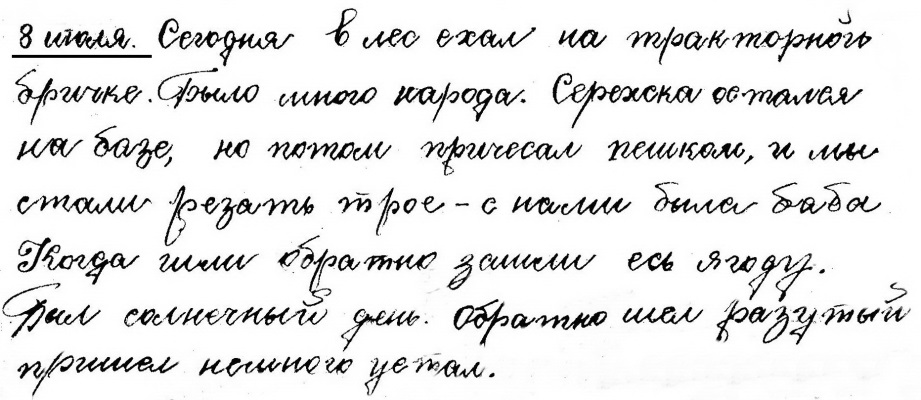 8 июля. Сегодня в лес ехал на тракторной
бричке. Было много народа. Сережска остался
на базе, но потом причесал пешком, и мы
стали резать трое - с нами была баба
Когда шли обратно зашли есь ягоду.
Был солнечный день. Обратно шел разутый
пришел немного устал.